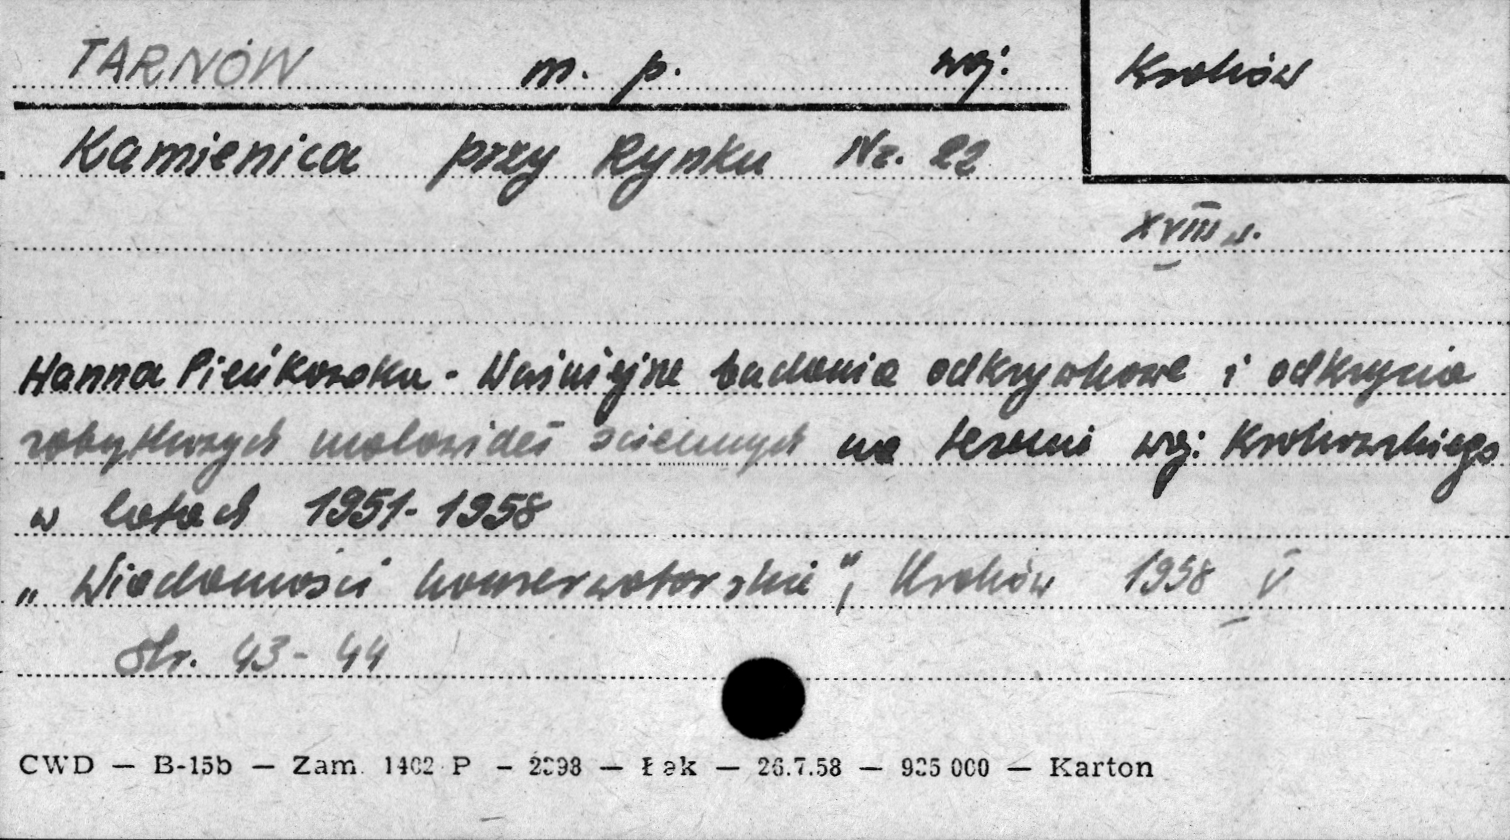 TARNÓW m. p. woj. Kraków
Kamienica przy Rynku Nr. 22
XVIII w.
Hanna Pieńkowska - Ważniejsze badania odkrywkowe i odkrycia
zabytkowych malowideł ściennych na terenie woj. Krakowskiego
w latach 1951-1958
„Wiadomości konserwatorskie", Kraków 1958 V
Str. 43-44
CWD — B-15b — Zam. 1402 P — 2398 — Łak — 26.7.58 — 925 000 — Karton